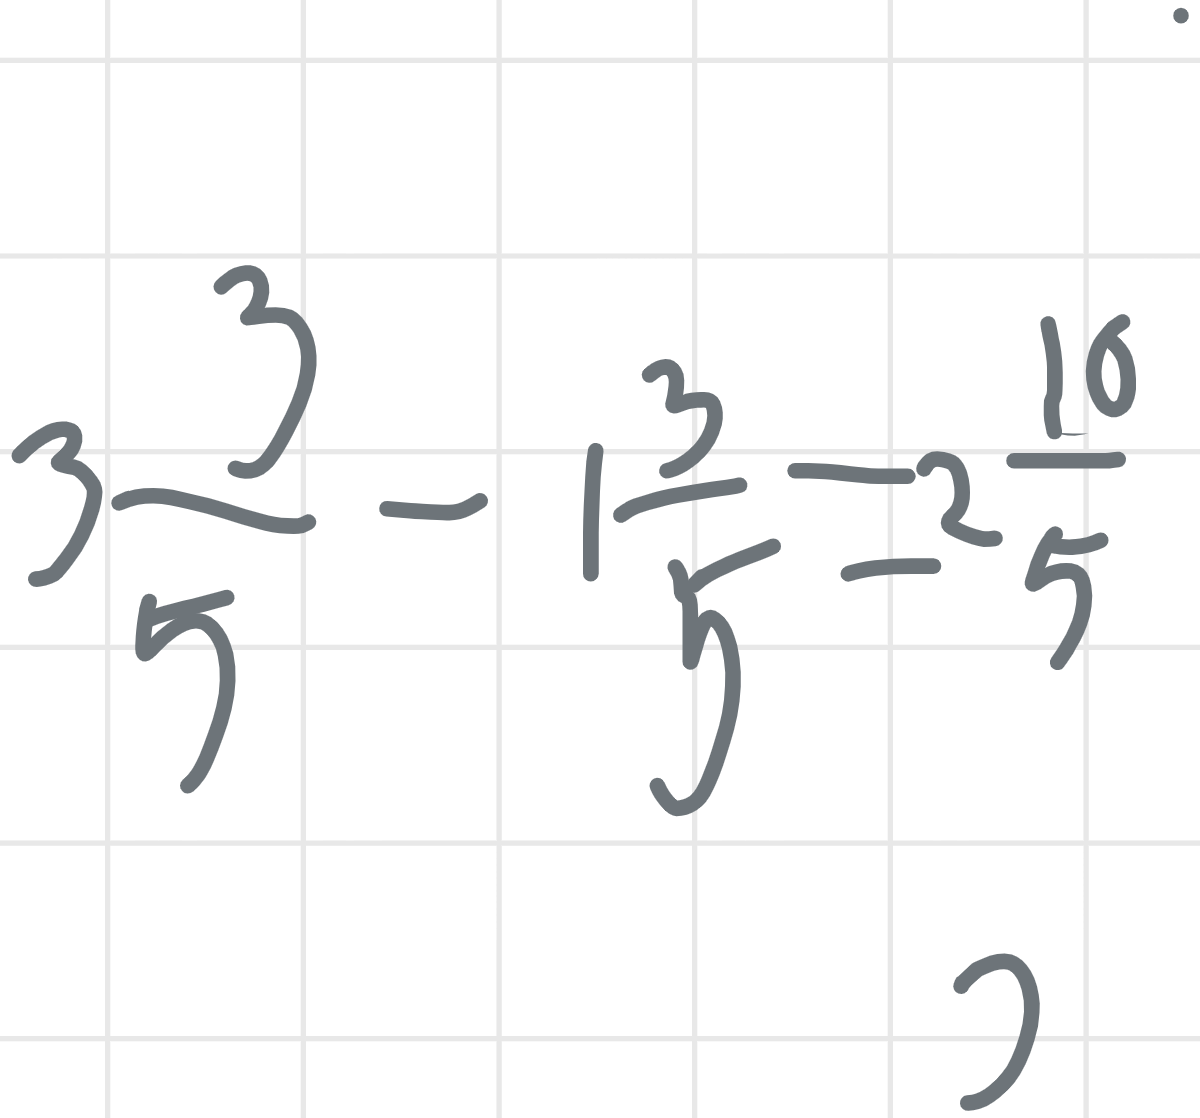 3 3/5 - 1 3/5 = 2 10/5